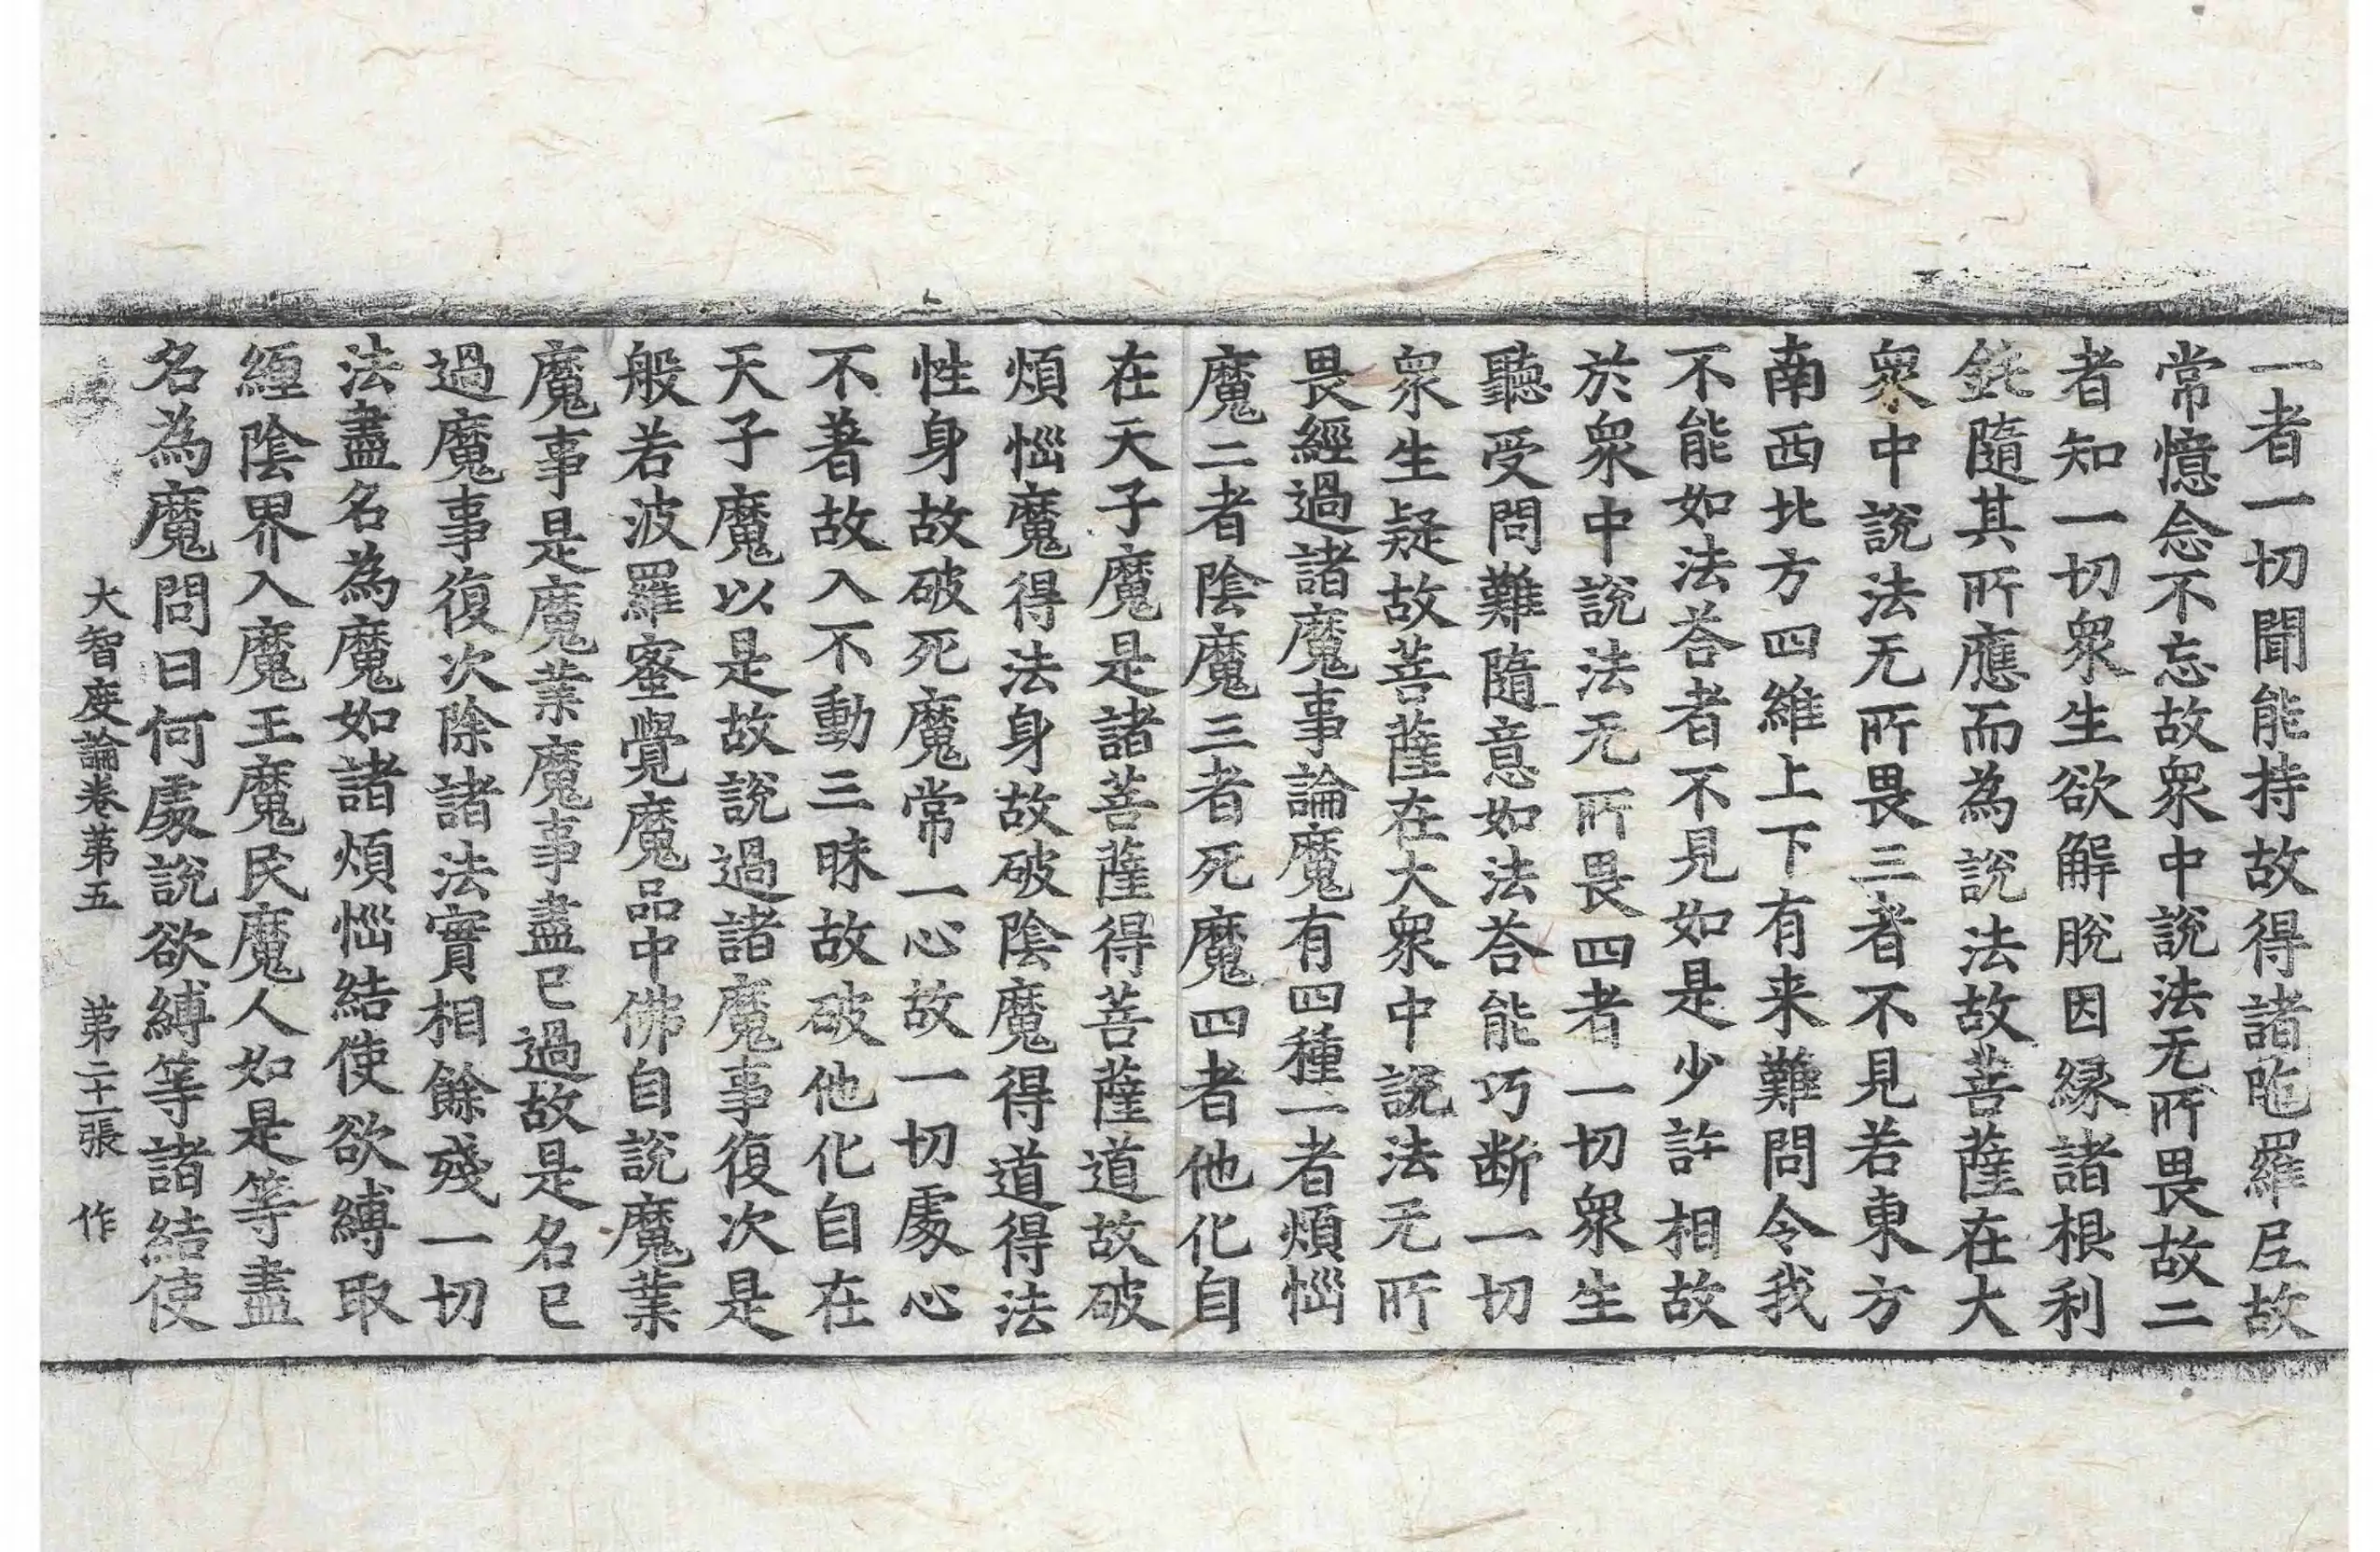 一者一切聞能持故得諸陁羅尼故
常憶念不忘故衆中說法无所畏故二
者知一切衆生欲解脫因緣諸根利
鈍隨其所應而為說法故菩薩在大
衆中說法无所畏三者不見若東方
南西北方四維上下有来難問令我
不能如法荅者不見如是少許相故
於衆中說法无所畏四者一切衆生
聽受問難隨意如法荅能巧断一切
衆生疑故菩薩在大衆中說法无所
畏經過諸魔事論魔有四種一者煩惱
魔二者陰魔三者死魔四者他化自
在天子魔是諸菩薩得菩薩道故破
煩惱魔得法身故破陰魔得道得法
性身故破死魔常一心故一切處心
不著故入不動三昧故破他化自在
天子魔以是故說過諸魔事復次是
般若波羅蜜覺魔品中佛自說魔業
魔事是魔業魔事盡已過故是名已
過魔事復次除諸法實相餘殘一切
法盡名為魔如諸煩惱結使欲縛取
纏陰界入魔王魔民魔人如是等盡
名為魔問曰何處說欲縛等諸結使
大智度論卷第五 第二十一張 作